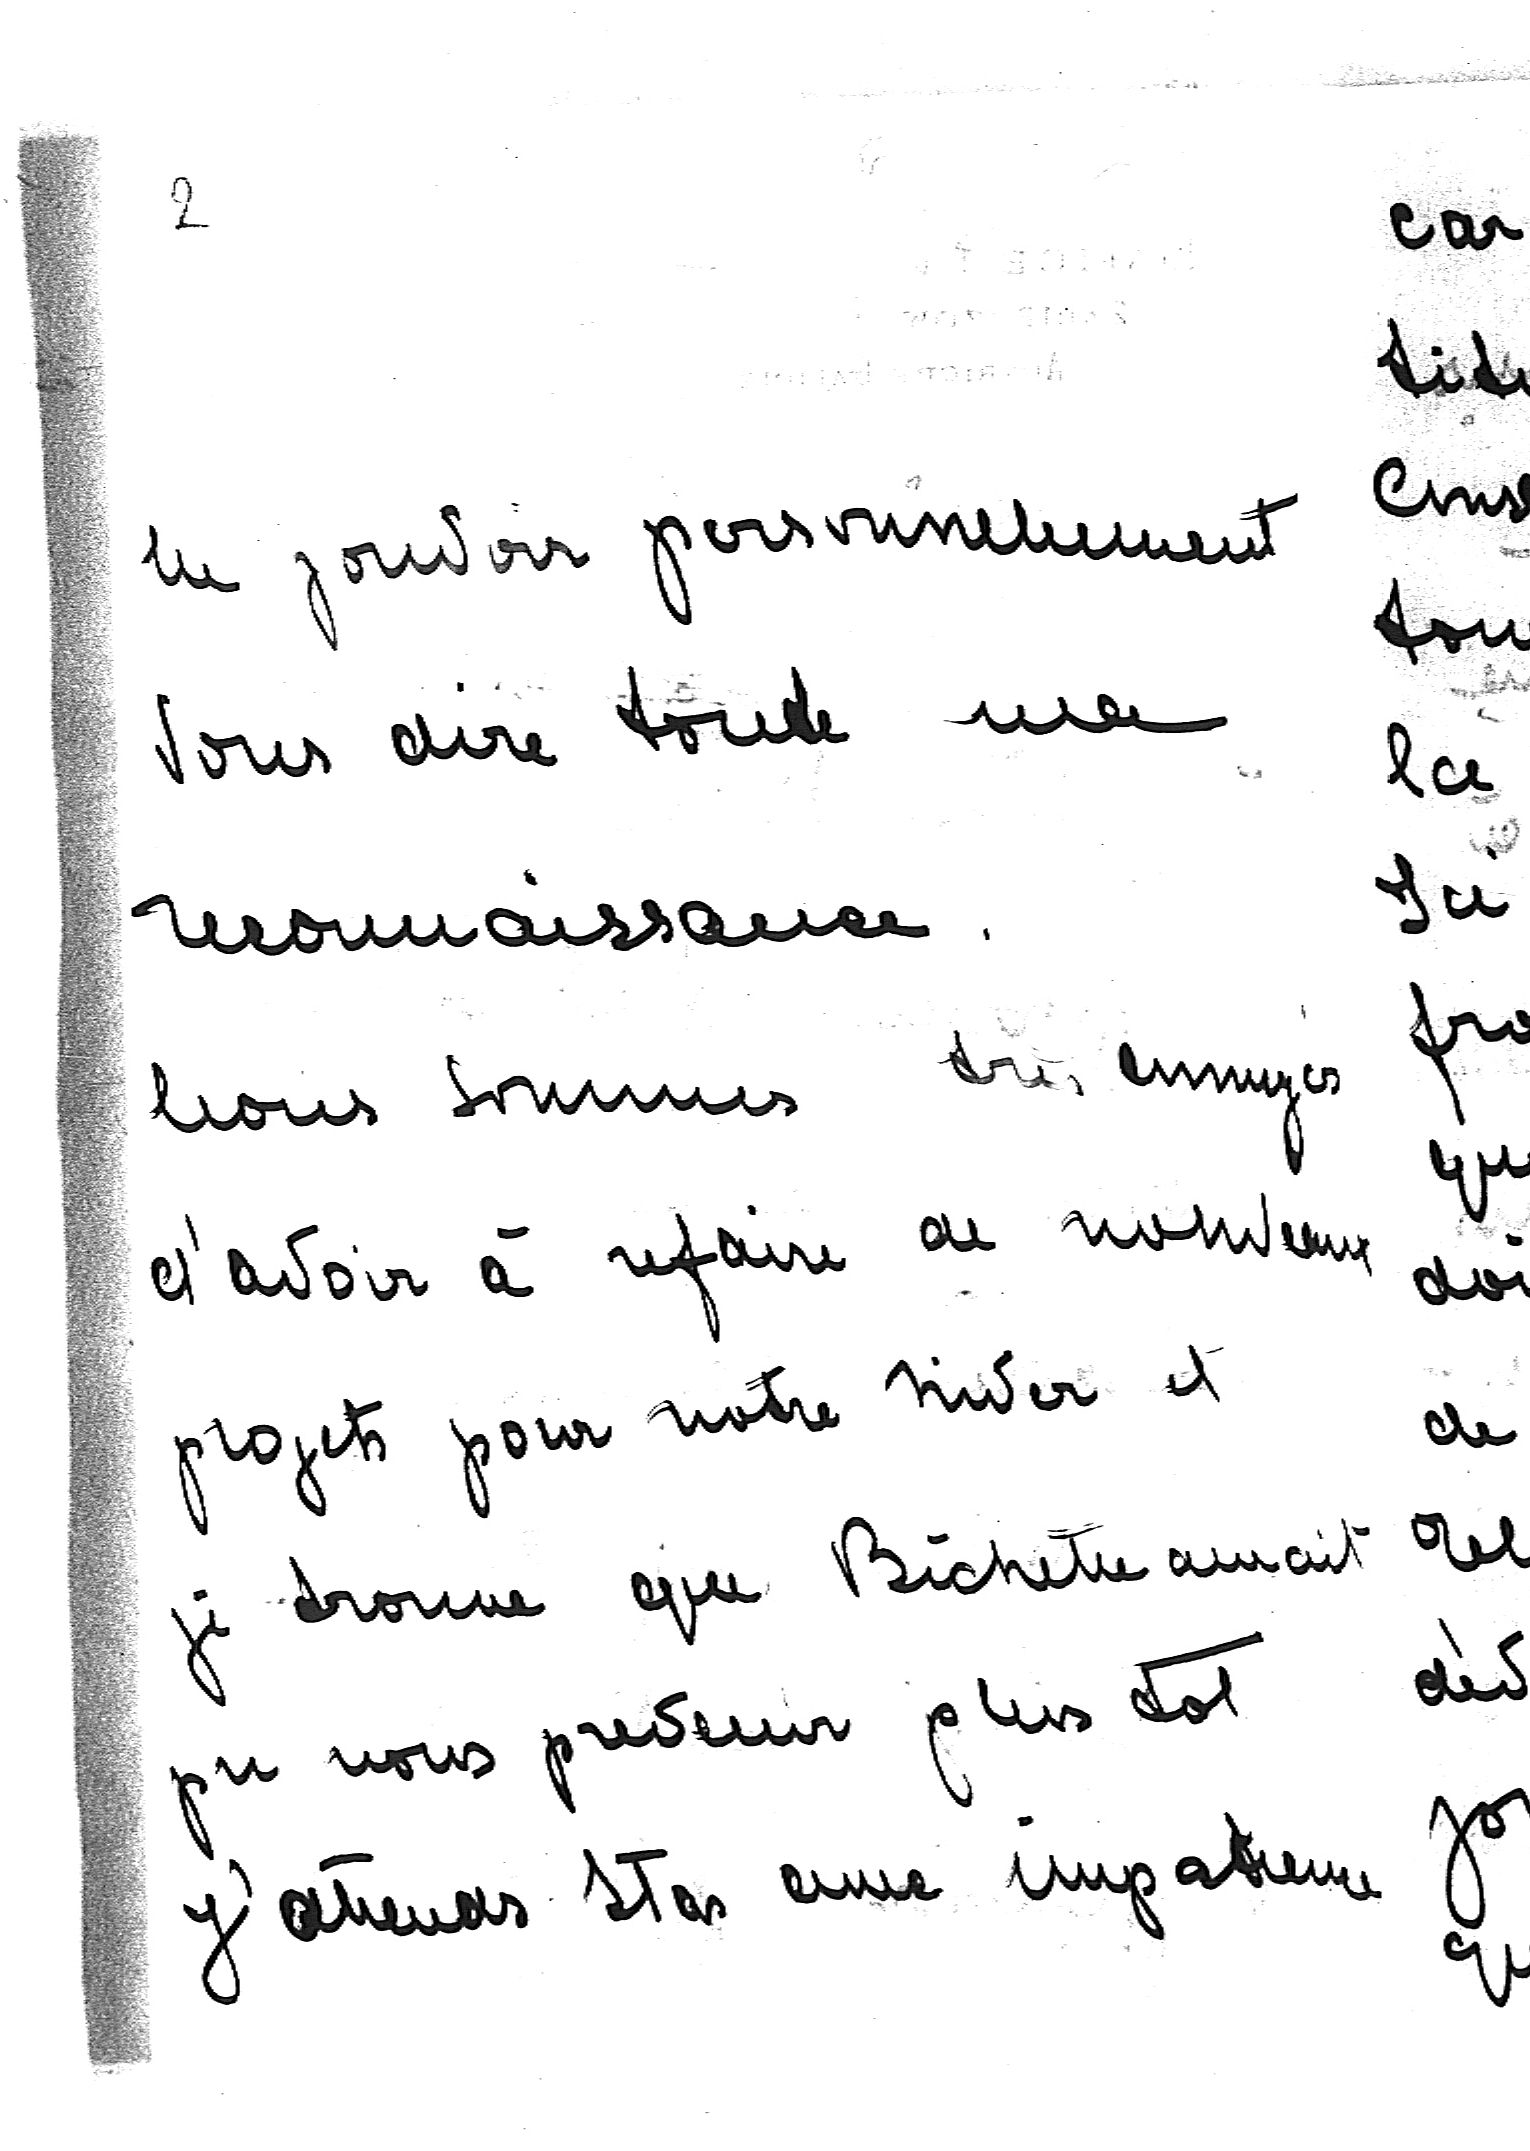 2
ne pouvoir personnellement
vous dire toute ma
reconnaissance.
Nous sommes très ennuyés
d'avoir à refaire de nouveaux
projets pour notre hiver et
je trouve que Bichette aurait
pu nous prévenir plus tôt
J'attends Stas avec impatience
car
la
Ici
de